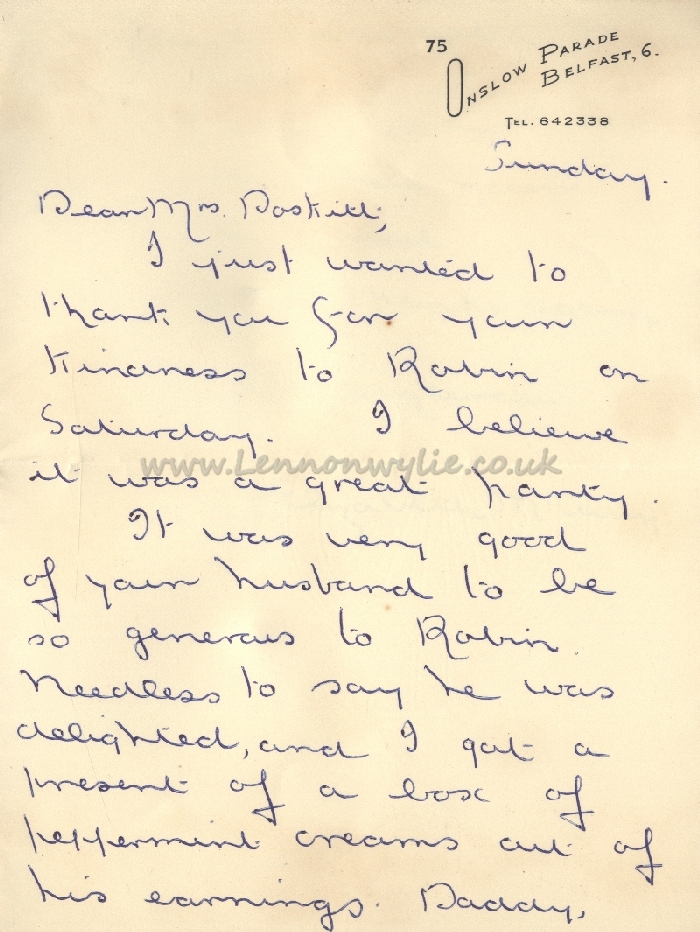 75
ONSLOW PARADE
BELFAST, 6.
TEL. 642338
Sunday.
Dear Mrs.
I just wanted to
thank you for your
kindness to Robin on
Saturday. I believe
www.Lennonwylie.co.uk
it was a great party.
It was very good
of your husband to be
so generous to Robin.
Needless to say he was
delighted, and I got a
present of a box of
peppermint creams out of
his earnings. Daddy,